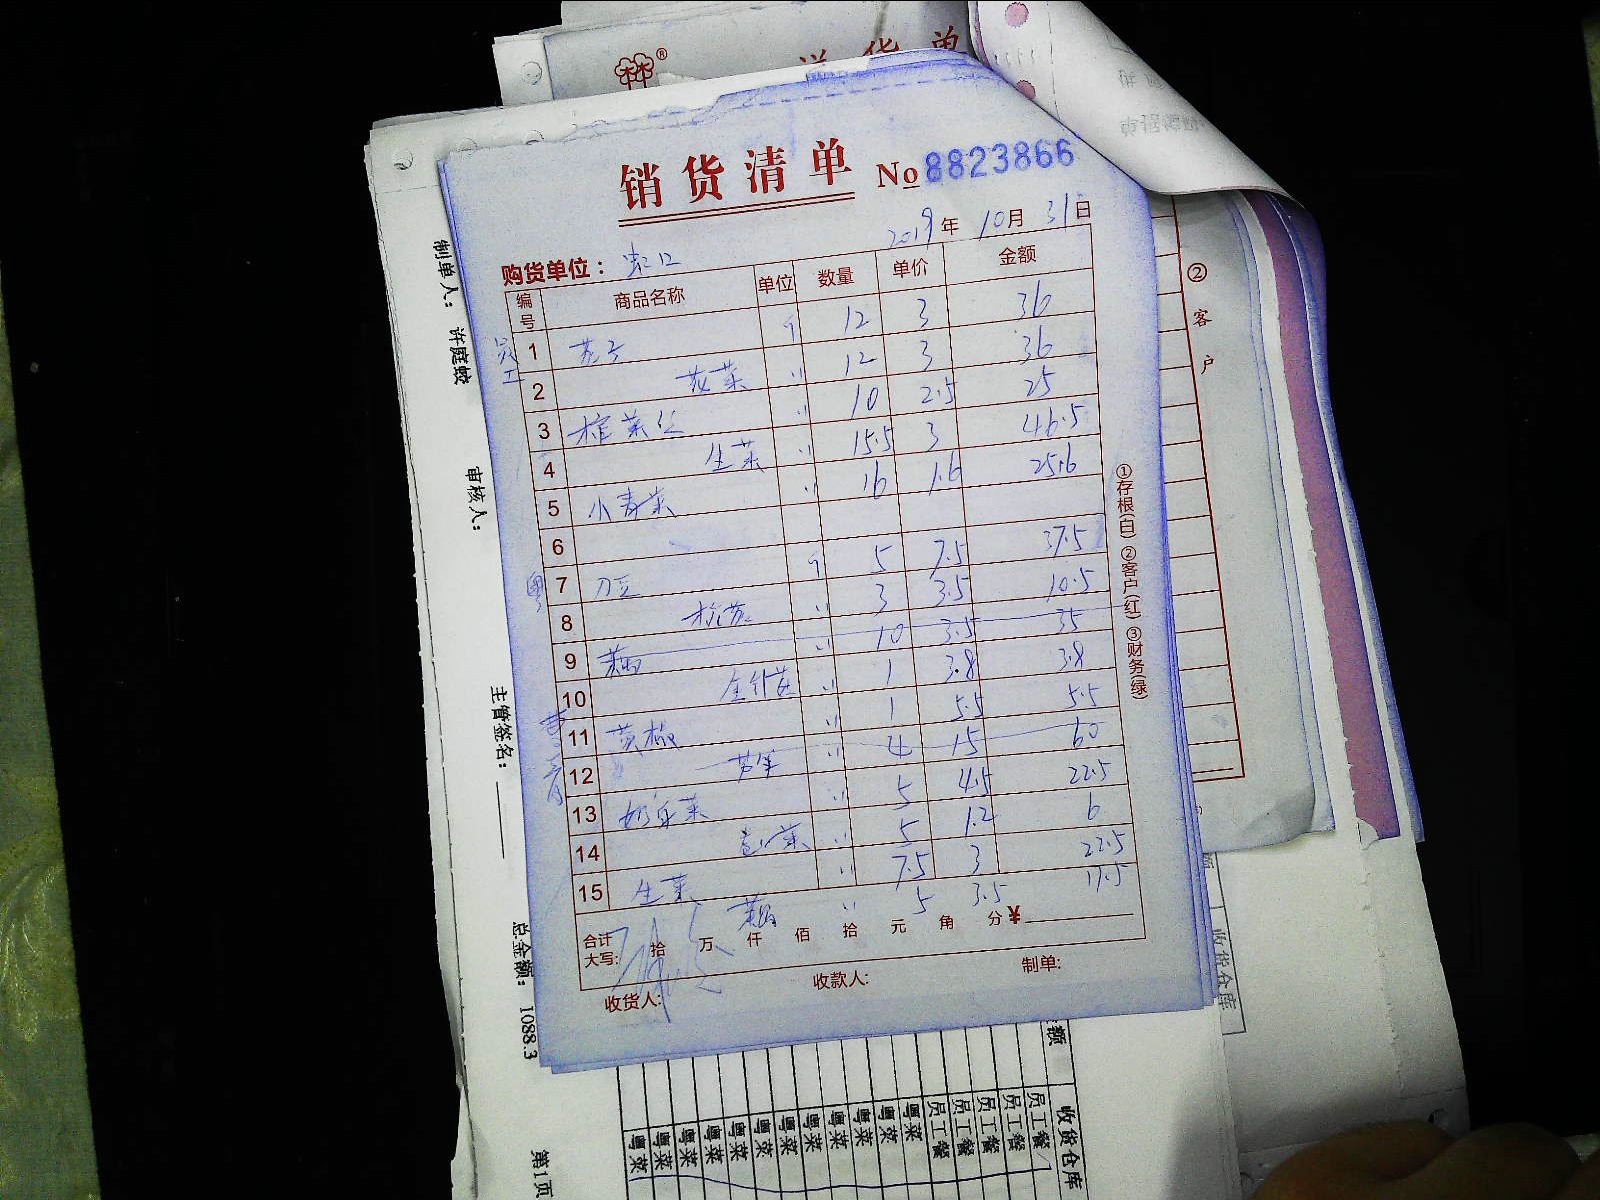 送货单
销货清单 No 8823866
2019年 10月 31日
购货单位：
编号 商品名称 单位 数量 单价 金额
员工
1 个 12 3 36
2 花菜 12 3 36
3 10 2.5 25
4 生菜 15.5 3 46.5
5 小青菜 16 1.6 25.6
6
粤
7 刀豆 个 5 7.5 37.5
8 3 3.5 10.5
9 10 3.5 35
10 金针菇 1 3.8 3.8
11 黄椒 1 5.5 5.5
12 芦笋 4 15 60
13 奶白菜 5 4.5 22.5
14 5 1.2 6
15 生菜 7.5 3 22.5
5 3.5 17.5
合计大写: 拾 万 仟 佰 拾 元 角 分 ¥
收货人: 收款人: 制单:
①存根(白) ②客户(红) ③财务(绿)
② 客户
制单人： 许庭蛟
审核人：
主管签名：
总金额： 1088.3
第1页
收货仓库
员工餐
员工餐
员工餐
员工餐
员工餐
粤菜
粤菜
粤菜
粤菜
粤菜
粤菜
粤菜
粤菜
粤菜
粤菜
粤菜
收货仓库